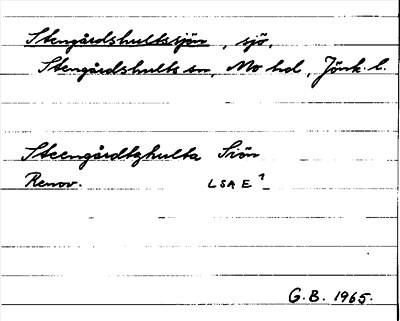 Stengårdshultssjön, sjö,
Stengårdshults sn, Mo hd, Jönk. l.
Steengårdtzhulta Siön
Renov. LSA E 1
G.B. 1965.